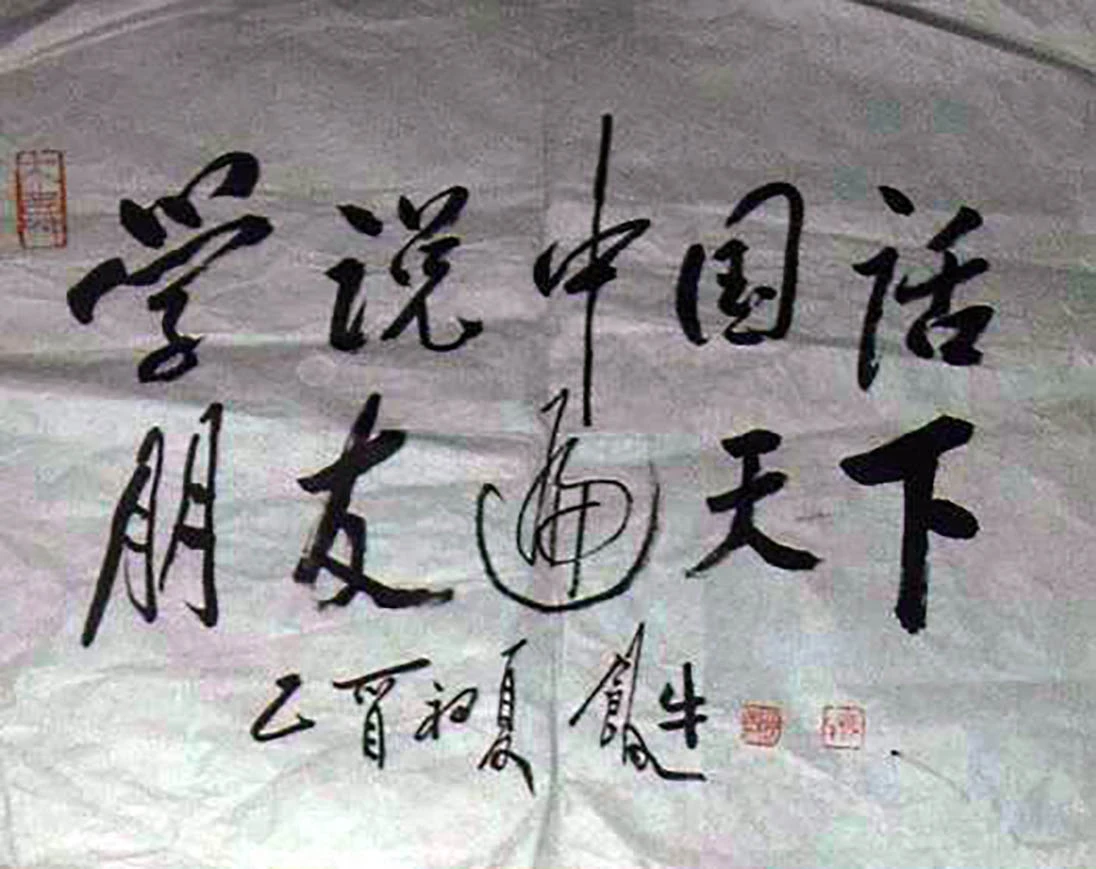 学说中国话
朋友遍天下
乙酉初夏